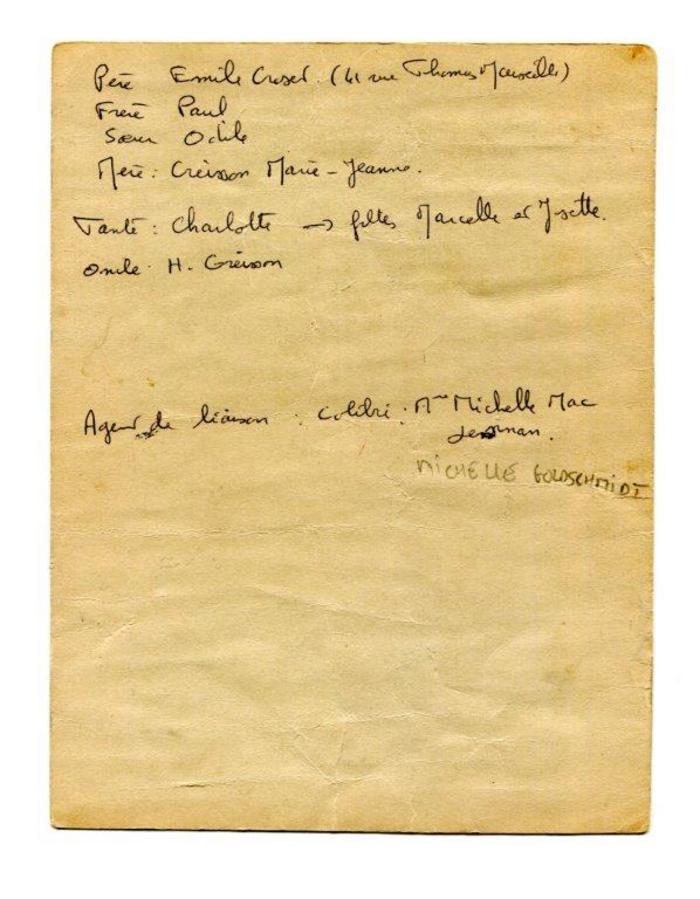 Père Emile Croset. (41 rue Thomas Marseille)
Frère Paul
Sœur Odile
Mère : Creisson Marie-Jeanne.
Tante : Charlotte → filles Marcelle et Yvette.
Oncle H. Creisson
Agent de liaison : Colibri : Mme Michelle Mac
MICHELLE GOLDSCHMIDT